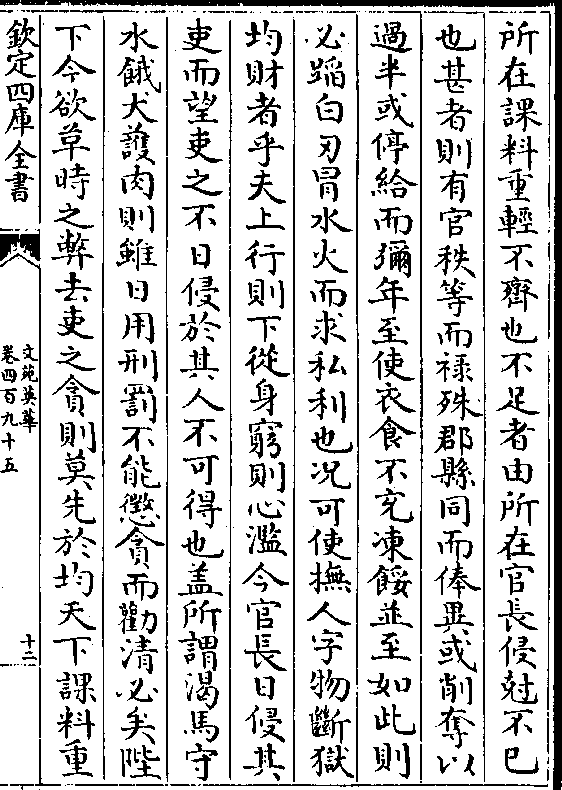 所在課料重輕不齊也不足者由所在官長侵尅不巳
也甚者則有官秩等而禄殊郡縣同而俸異或削奪以
過半或停給而彌年至使衣食不充凍餒並至如此則
必蹈白刃冒水火而求私利也况可使撫人字物斷獄
均財者乎夫上行則下從身窮則心濫今官長日侵其
吏而望吏之不日侵於其人不可得也盖所謂渴馬守
水餓犬護肉則雖日用刑罰不能懲貪而勸清必矣陛
下今欲革時之弊去吏之貪則莫先於均天下課料重
欽定四庫全書
文苑英華
卷四百九十五
十二